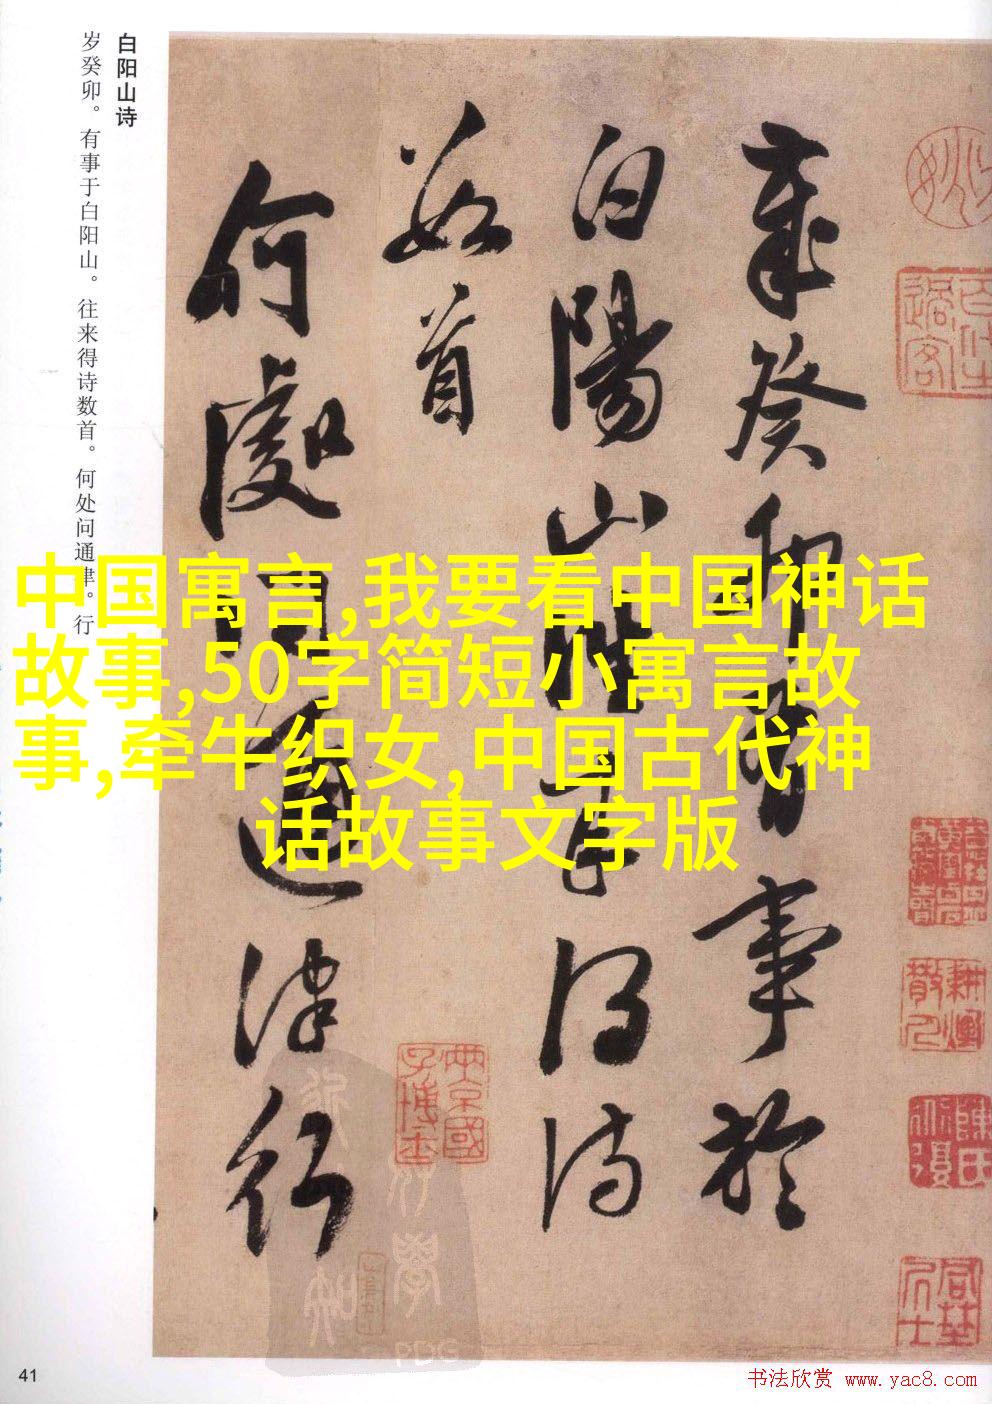 白阳山诗
岁癸卯。有事于白阳山。往来得诗数首。何处问通津。行
歲癸卯有事於
白陽山往來得詩
數首
何處問通津行
中国寓言,我要看中国神话
故事,50字简短小寓言故
事,牵牛织女,中国古代神
话故事文字版
41
书法欣赏 www.yac8.com